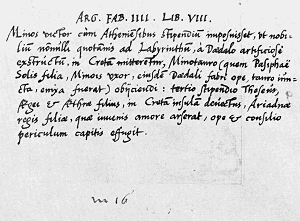 ARG. FAB. IIII. LIB. VIII.
Minos victor cùm Atheniẽsibus stipendiũ imposuisset, vt nobi-
liũ nonnulli quotanis ad Labyrinthũ, à Dædalo artificiosè
exstructũ, in Cretã mitterẽtur, Minotauro (quem Pasiphaë
Solis filia, Minois vxor, eiusdẽ Dædali fabri ope, tauro iũ-
cta, enixa fuerat) obijciendi: tertio stipendio Theseus,
Ægei & Æthræ filius, in Cretã insulã deuectus, Ariadnæ
regis filiæ, quæ iuuenis amore arserat, ope & consilio
periculum capitis effugit.
m 16